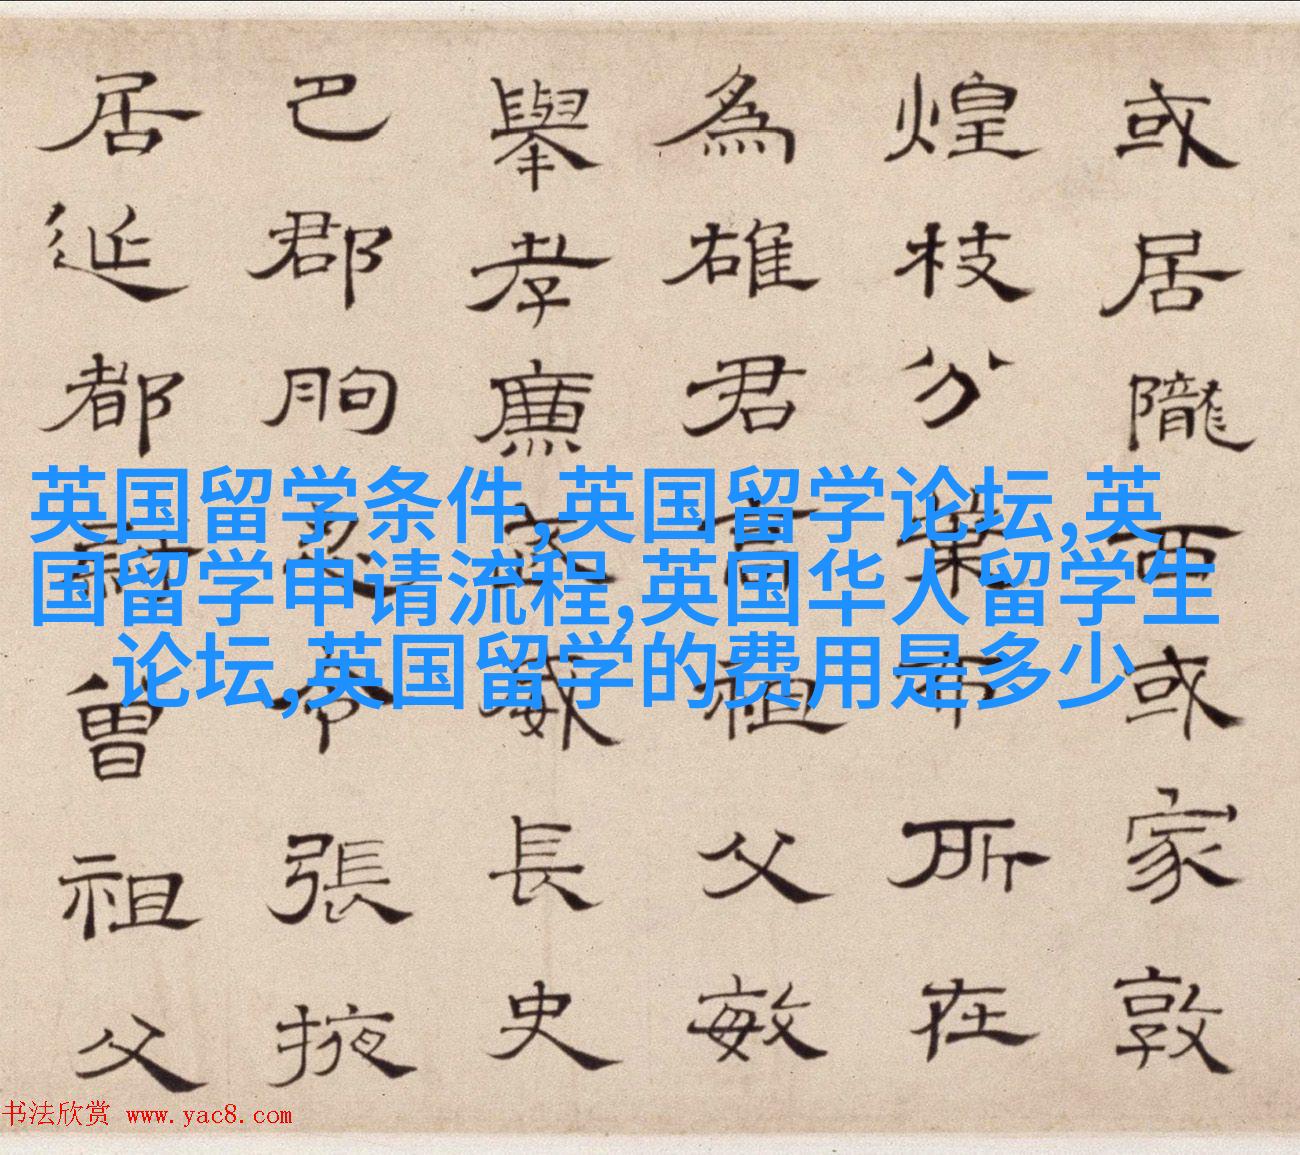 或居隴西或家敦
煌枝分葉布所在
為雄君高祖父敏
舉孝廉武威長史
巴郡朐忍令張掖
居延都尉曾祖父
英国留学条件,英国留学论坛,英
国留学申请流程,英国华人留学生
论坛,英国留学的费用是多少
书法欣赏 www.yac8.com